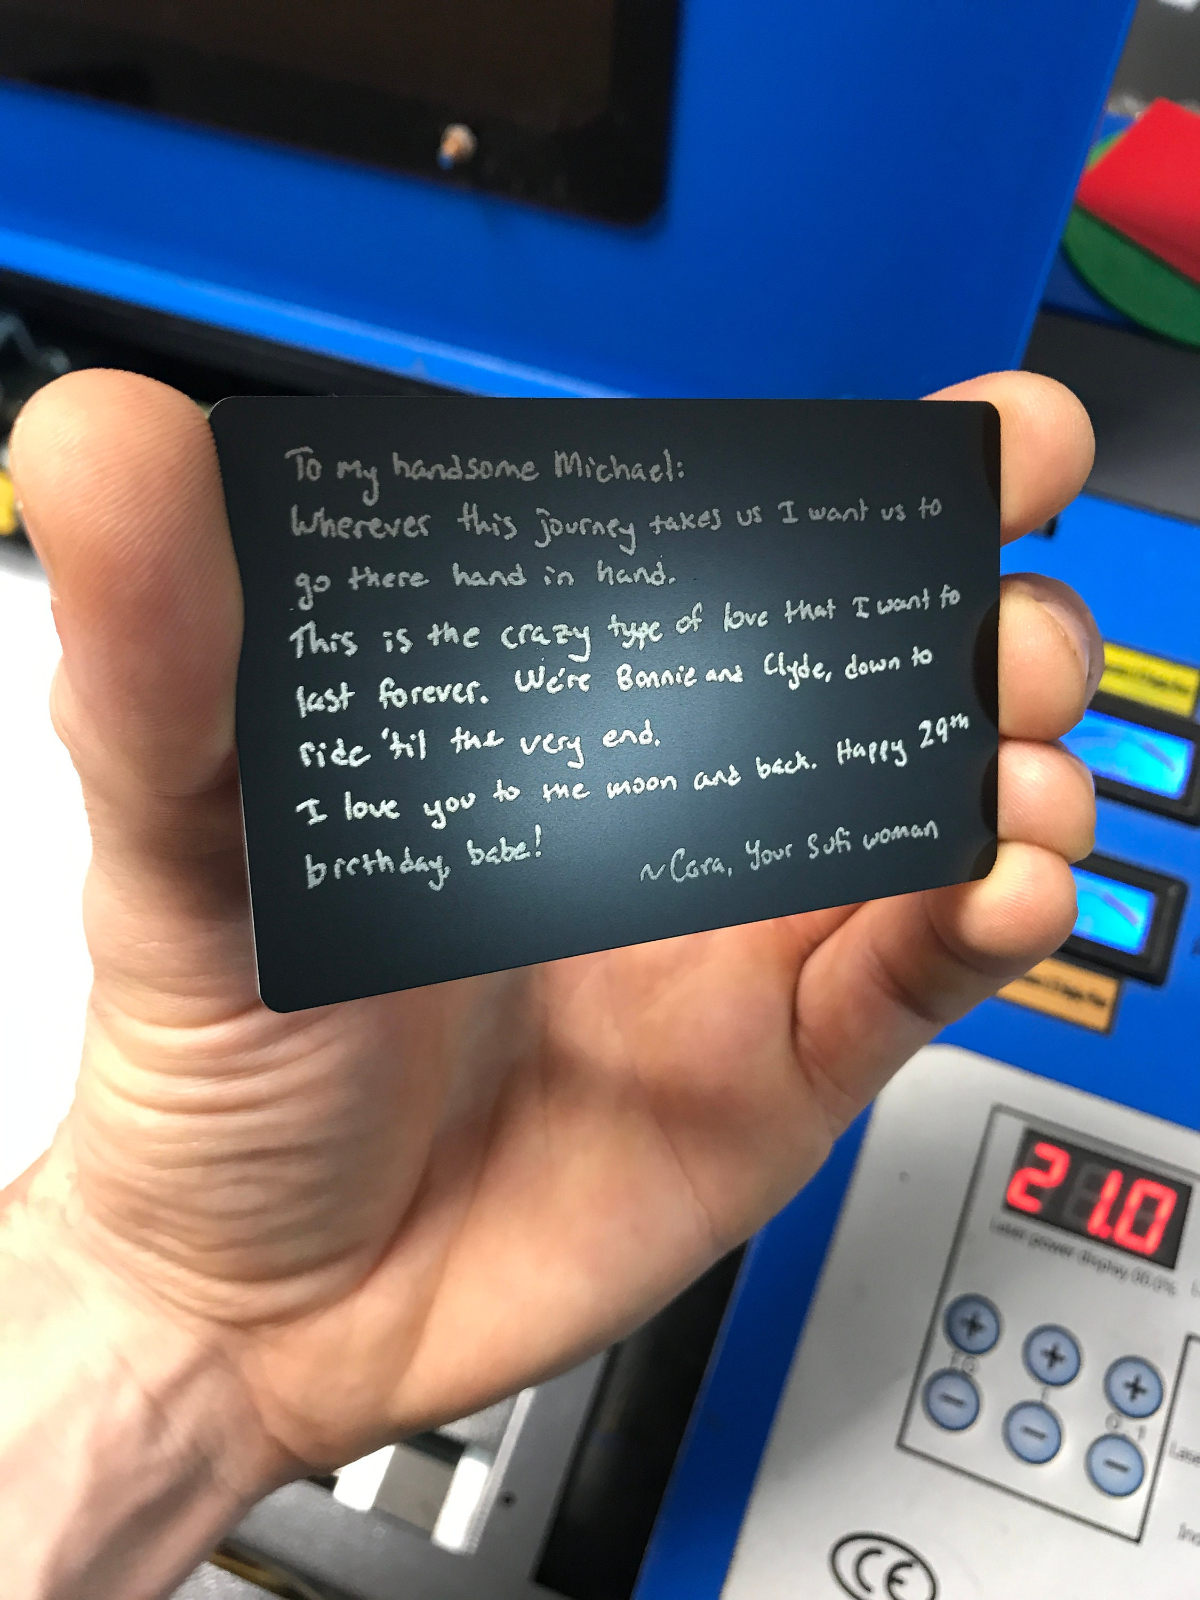 To my handsome Michael:
Wherever this journey takes us I want us to
go there hand in hand.
This is the crazy type of love that I want to
last forever. We're Bonnie and Clyde, down to
ride 'til the very end.
I love you to the moon and back. Happy 29th
birthday, babe!
~Cara, Your Sufi woman
21.0
Laser power display 00.0%
+ + +
- - -
CE